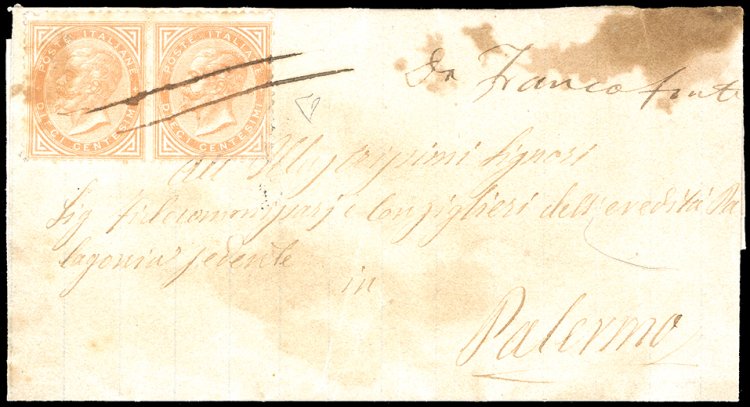 POSTE ITALIANE
DIECI CENTESIMI
POSTE ITALIANE
DIECI CENTESIMI
Da Francofonte
Signori
Sig fidecommissarj e Consiglieri dell'eredità Pa
lagonia sedente
in
Palermo